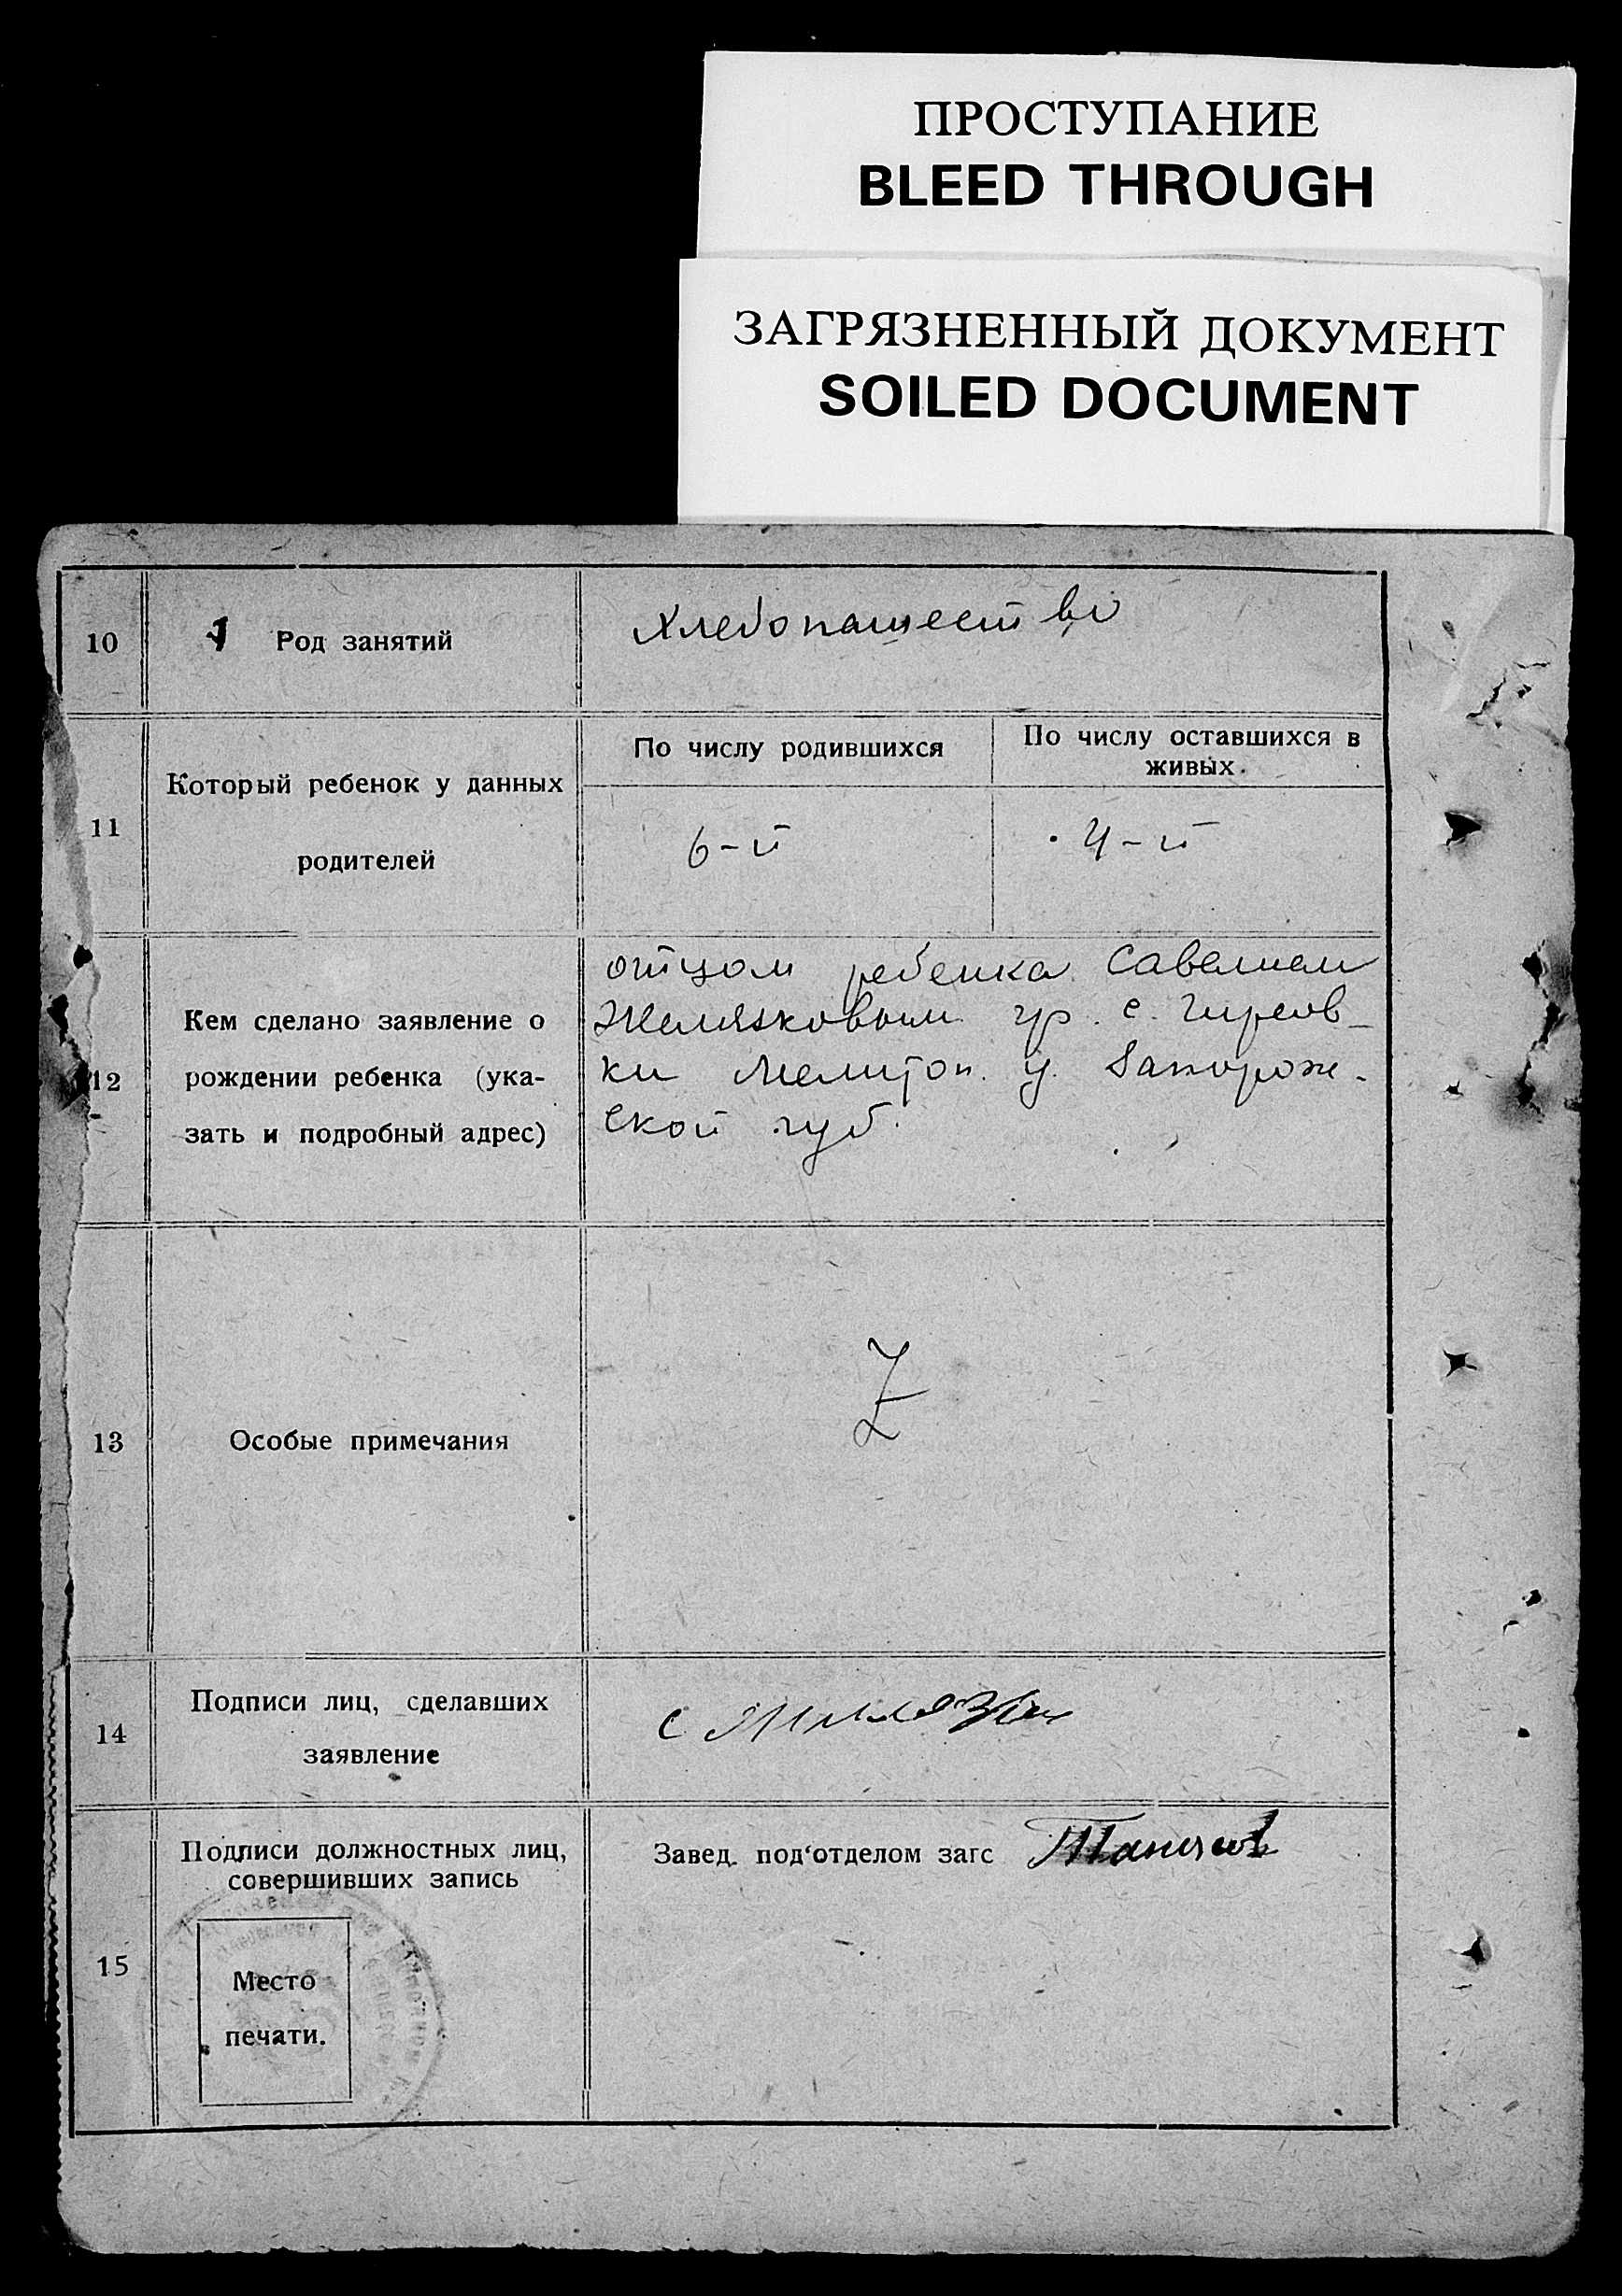 ПРОСТУПАНИЕ
BLEED THROUGH
ЗАГРЯЗНЕННЫЙ ДОКУМЕНТ
SOILED DOCUMENT
10
Род занятий
Хлебопашество
11
Который ребенок у данных
родителей
По числу родившихся
По числу оставшихся в
живых.
6-й
4-й
12
Кем сделано заявление о
рождении ребенка (ука-
зать и подробный адрес)
отцом ребенка Савелием
Желязковым гр. с. Гирсов-
ки Мелитоп. у. Запорож-
ской губ.
13
Особые примечания
Z
14
Подписи лиц, сделавших
заявление
С
15
Подписи должностных лиц,
совершивших запись
Место
печати.
Завед. под'отделом загс